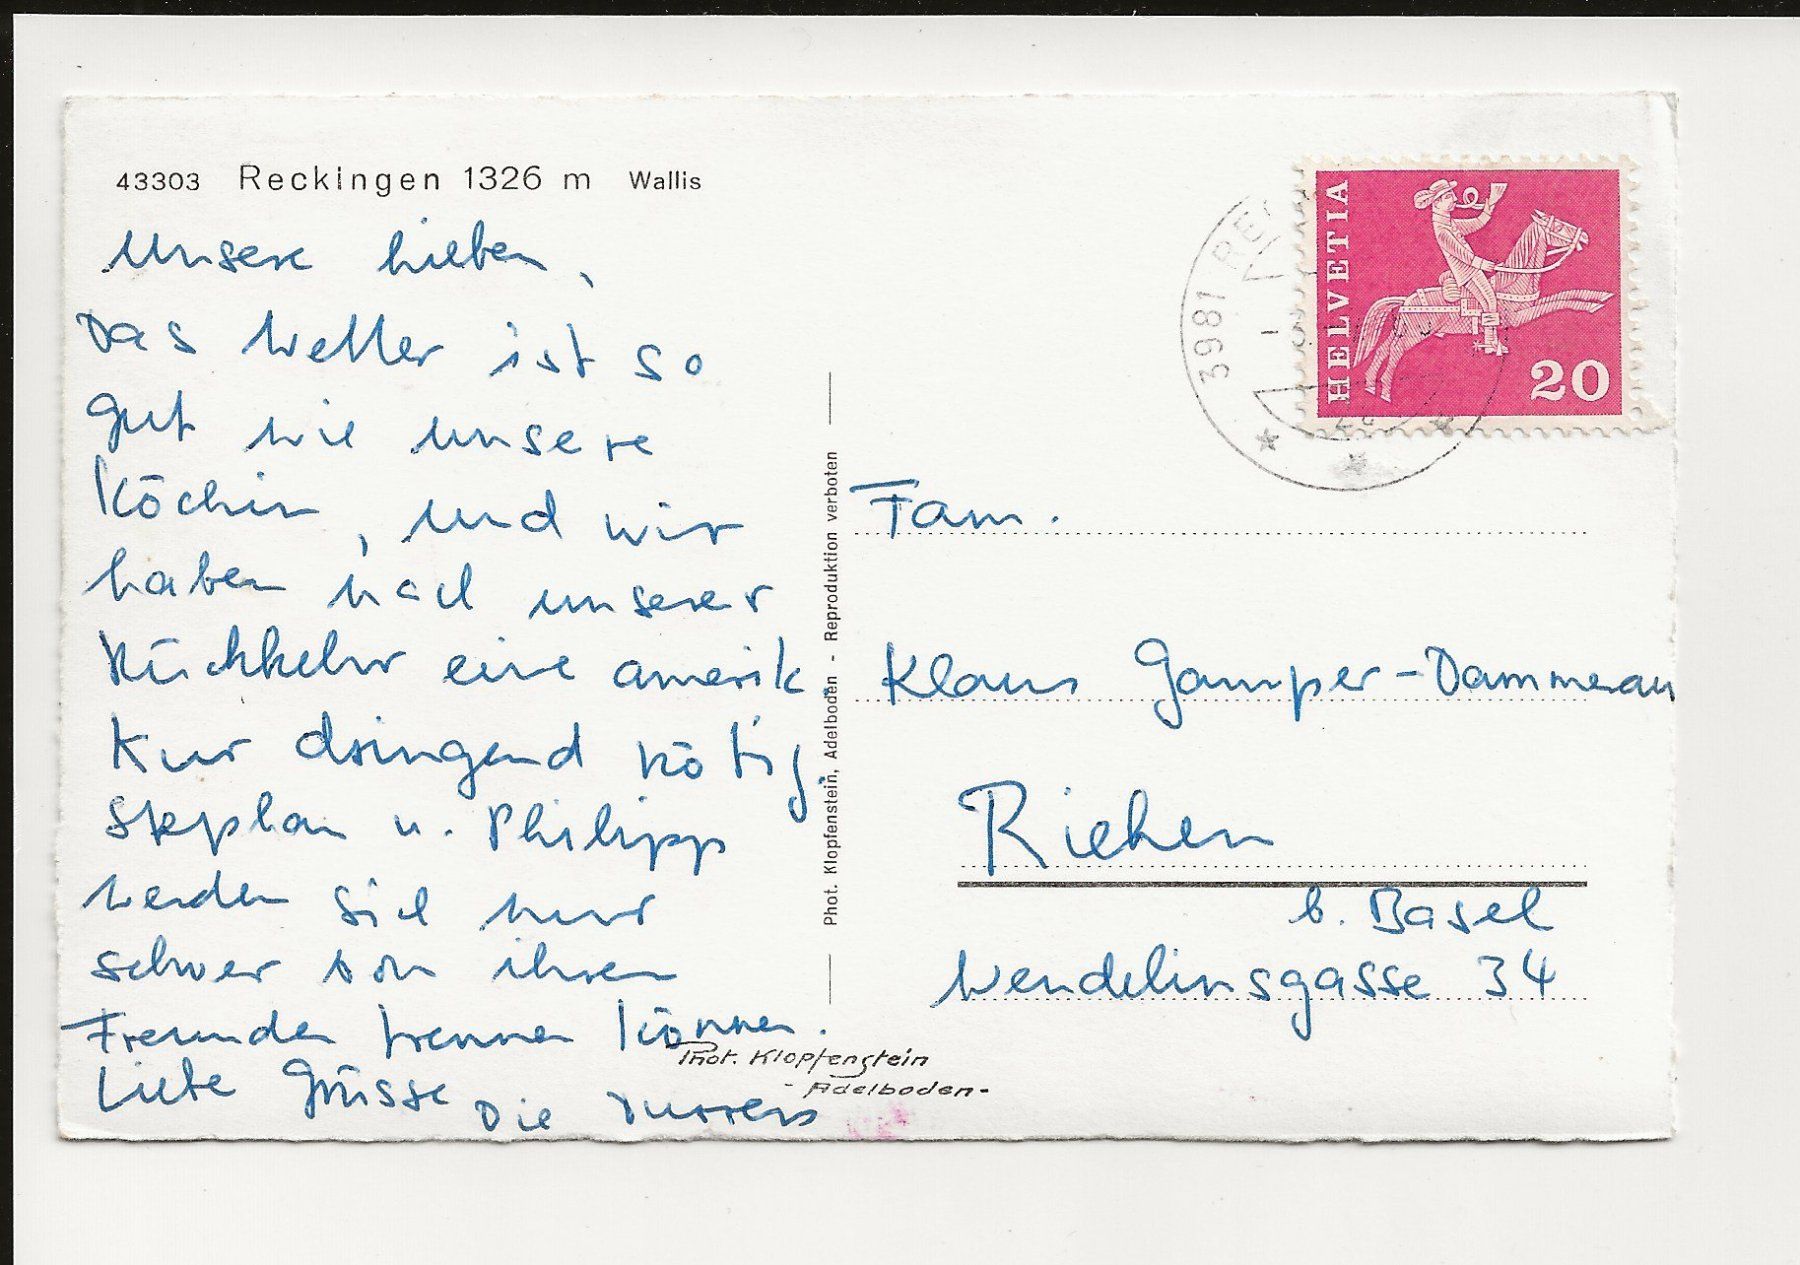 43303 Reckingen 1326 m Wallis
Unsere lieben,
Das Wetter ist so
gut wie unsere
Köchin, und wir
haben nach unserer
Rückkehr eine amerik.
Kur dringend nötig
Stephan u. Philipp
werden sich nur
schwer von ihren
Freunden trennen können.
Liebe Grüsse Die
Phot. Klopfenstein, Adelboden - Reproduktion verboten
Phot. Klopfenstein
- Adelboden -
HELVETIA
20
3981 REC
Fam.
Klaus Gamper-Dammerau
Riehen
b. Basel
Wendelinsgasse 34